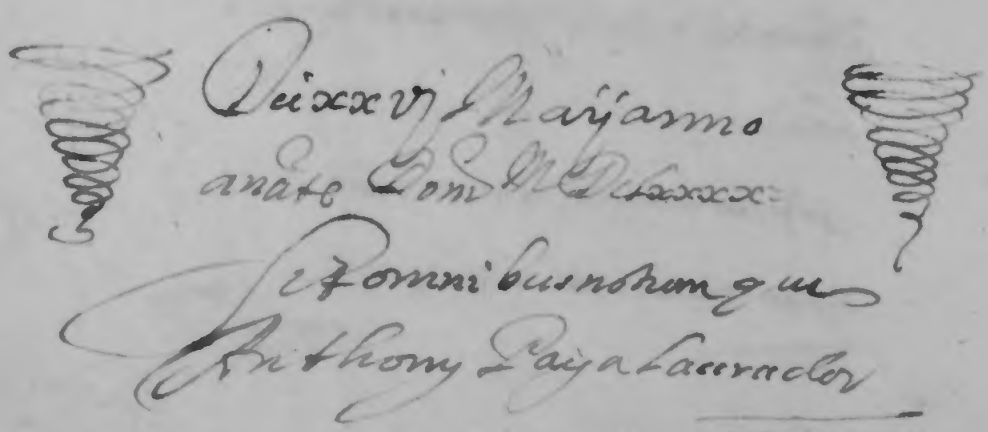 Die xxvj Maÿ anno
a nate Dom MDClxxxx
Sit omnibus notum que
Anthony Paya Laurador